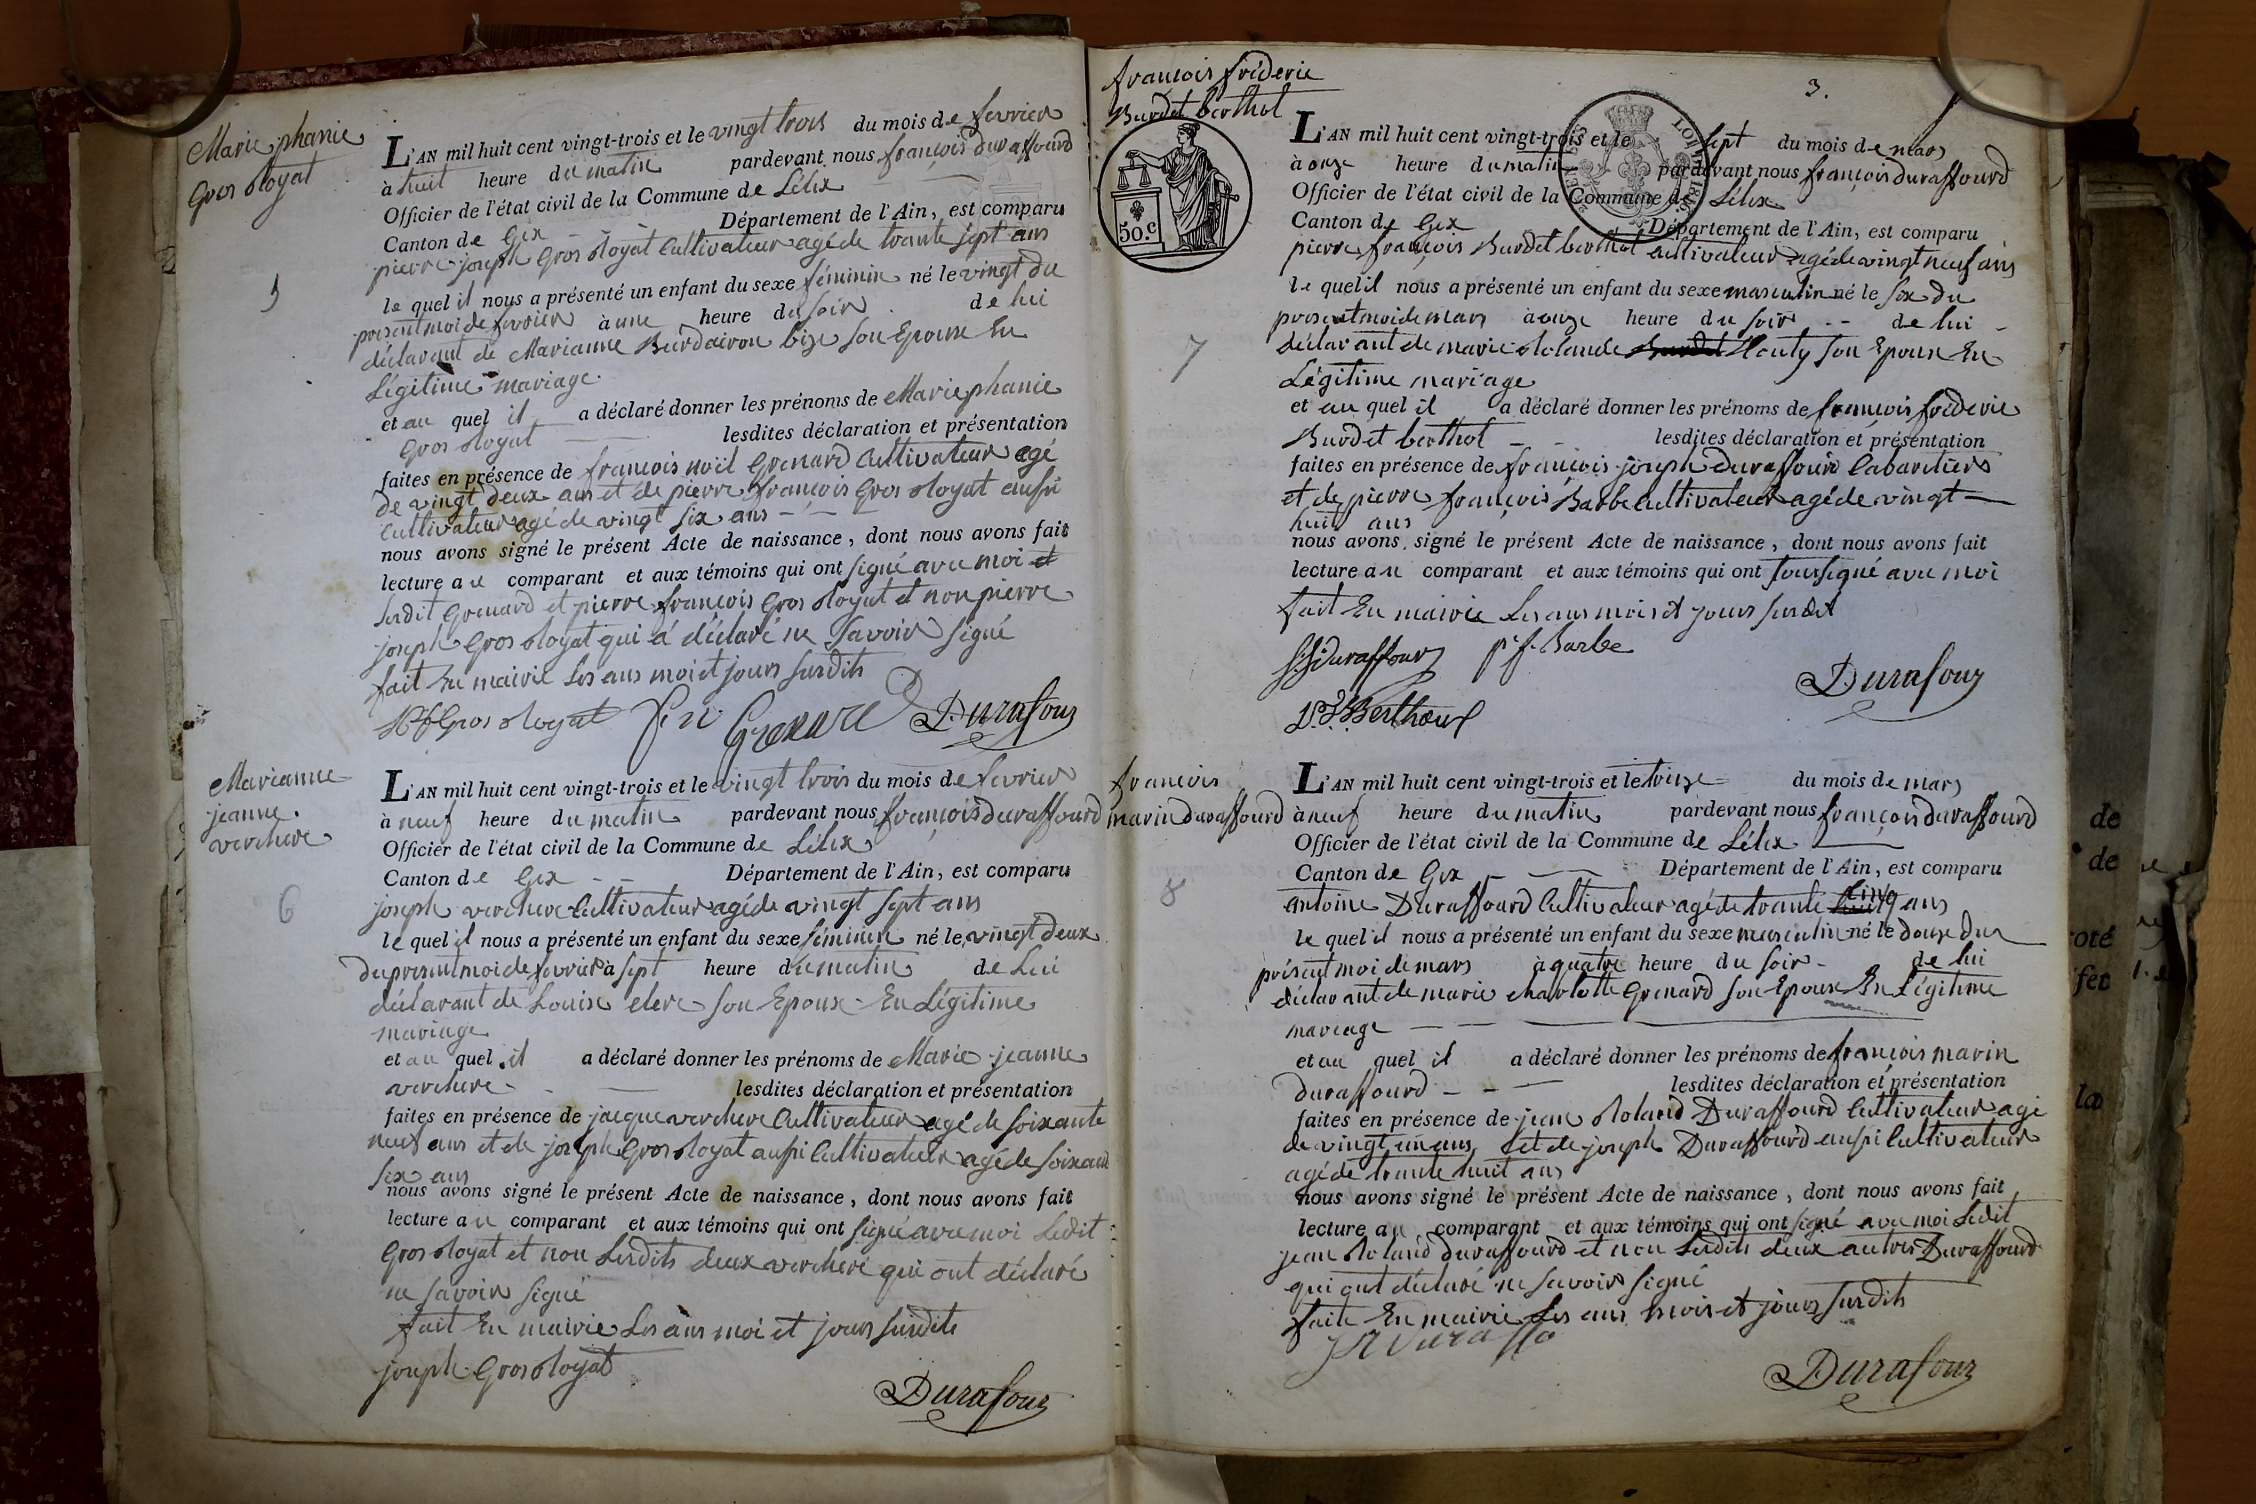 Marie phanie
Gros Royat
5
L'AN mil huit cent vingt-trois et le vingt trois du mois de fevrier
à huit heure du matin pardevant nous françois duraffourd
Officier de l'état civil de la Commune de Lélex
Canton de Gex Département de l'Ain, est comparu
pierre joseph Gros Royat Cultivateur agé de trante sept ans
le quel il nous a présenté un enfant du sexe féminin né le vingt du
present moi de fevrier à une heure du soir de lui
déclarant de Marianne Burdairon bize son Epouse En
Légitime mariage.
et au quel il a déclaré donner les prénoms de Marie phanie
Gros Royat lesdites déclaration et présentation
faites en présence de françois noïl Grenard Cultivateur agé
de vingt deux ans et de pierre françois Gros Royat aussi
Cultivateur agé de vingt six ans
nous avons signé le présent Acte de naissance, dont nous avons fait
lecture au comparant et aux témoins qui ont signé avec moi et
Susdit Grenard et pierre françois Gros Royat et non pierre
joseph Gros Royat qui a déclaré ne Savoir signé
fait En mairie Les ans moi et jours susdits
Gros Royat f. n. Grenard Durafour
Marianne
jeanne
verchere
6
L'AN mil huit cent vingt-trois et le vingt trois du mois de fevrier
à neuf heure du matin pardevant nous françois duraffourd
Officier de l'état civil de la Commune de Lélex
Canton de Gex Département de l'Ain, est comparu
joseph verchere Cultivateur agé de vingt sept ans
le quel il nous a présenté un enfant du sexe féminin né le vingt deux
du present moi de fevrier à sept heure du matin de Lui
déclarant de Louise elere son Epouse En Légitime
mariage
et au quel il a déclaré donner les prénoms de Marie jeanne
verchere lesdites déclaration et présentation
faites en présence de jacque verchere Cultivateur agé de soixante
neuf ans et de joseph Gros Royat aussi Cultivateur agé de soixante
six ans
nous avons signé le présent Acte de naissance, dont nous avons fait
lecture au comparant et aux témoins qui ont signé avec moi Ledit
Gros Royat et non Lesdits deux verchere qui ont déclaré
ne savoir signé
fait En mairie Les ans moi et jours susdits
joseph Gros Royat
Durafour
françois fréderic
Burdet berthol
3.
50.c
7
L'AN mil huit cent vingt-trois et le sept du mois de mars
à onze heure du matin pardevant nous françois duraffourd
Officier de l'état civil de la Commune de Lélex
Canton de Gex Département de l'Ain, est comparu
pierre françois Burdet berthol Cultivateur agé de vingt neuf ans
le quel il nous a présenté un enfant du sexe masculin né le six du
present moi de mars à onze heure du soir de lui
déclarant de marie Rolande Burdet son Epouse En
Légitime mariage
et au quel il a déclaré donner les prénoms de françois fréderic
Burdet berthol lesdites déclaration et présentation
faites en présence de françois joseph duraffourd Cabaretiers
et de pierre françois Barbe Cultivateur agé de vingt
huit ans
nous avons signé le présent Acte de naissance, dont nous avons fait
lecture au comparant et aux témoins qui ont soussigné avec moi
fait En mairie Les ans mois et jours susdit
duraffour p. f. Barbe
Durafour
Berthoud
françois
marin duraffourd
8
L'AN mil huit cent vingt-trois et le treize du mois de mars
à neuf heure du matin pardevant nous françois duraffourd
Officier de l'état civil de la Commune de Lélex
Canton de Gex Département de l'Ain, est comparu
antoine Duraffourd Cultivateur agé de trante cinq ans
le quel il nous a présenté un enfant du sexe masculin né le douze du
présent moi de mars à quatre heure du soir de lui
déclarant de marie charlotte Grenard son Epouse En Légitime
mariage
et au quel il a déclaré donner les prénoms de françois marin
duraffourd lesdites déclaration et présentation
faites en présence de jean Roland Duraffourd Cultivateur agé
de vingt un ans et de joseph Duraffourd aussi Cultivateur
agé de trante huit ans
nous avons signé le présent Acte de naissance, dont nous avons fait
lecture au comparant et aux témoins qui ont signé avec moi Ledit
jean Roland duraffourd et non Lesdits deux autres Duraffourd
qui ont déclaré ne savoir signé
faite En mairie Les ans mois et jours susdits
Durafour
de
de
la